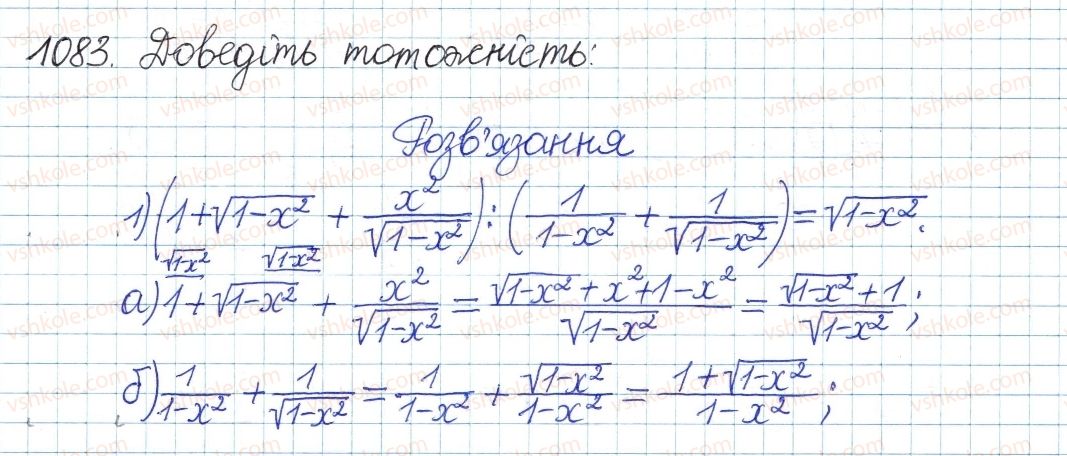 1083. Доведіть тотожність:
Розв'язання
1) (1+√(1-x²) + x²/√(1-x²)) : (1/(1-x²) + 1/√(1-x²)) = √(1-x²).
а) 1+√(1-x²) + x²/√(1-x²) = (√(1-x²)+x²+1-x²)/√(1-x²) = (√(1-x²)+1)/√(1-x²);
б) 1/(1-x²) + 1/√(1-x²) = 1/(1-x²) + √(1-x²)/(1-x²) = (1+√(1-x²))/(1-x²);